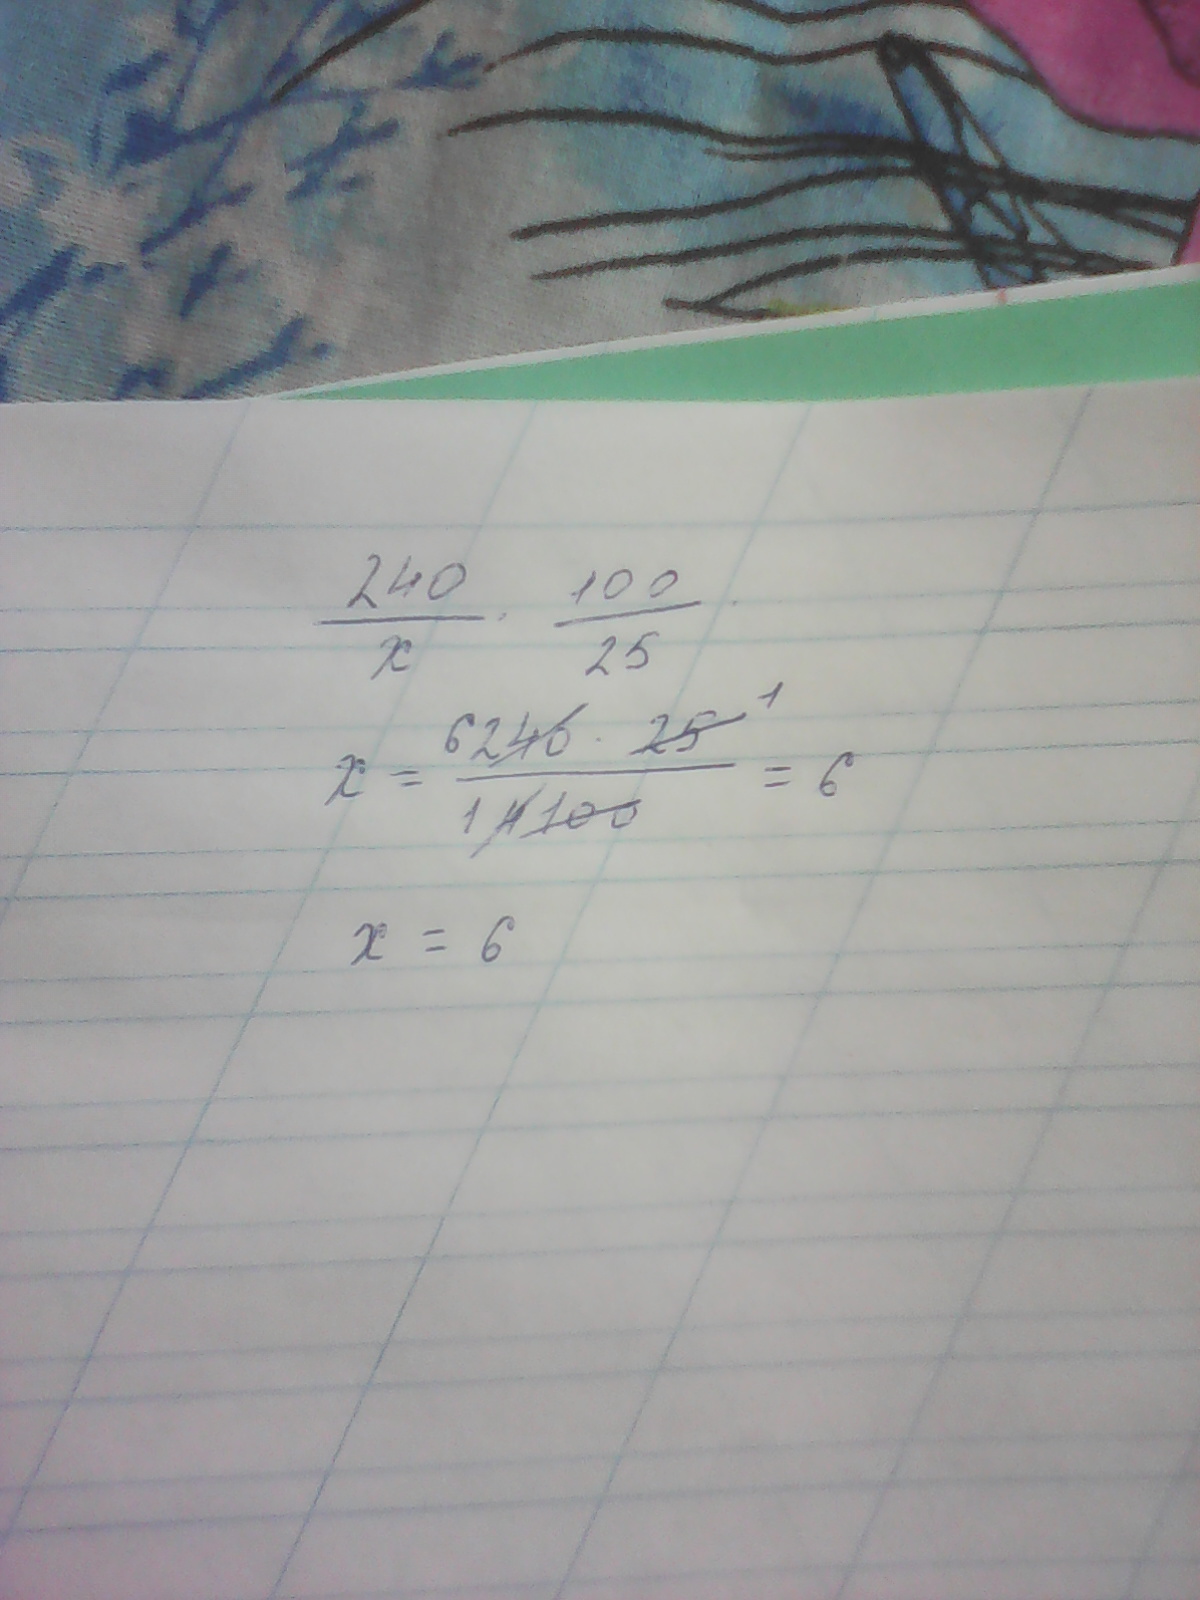 240/x · 100/25
x = 6240 · 25 1 / 1 4 100 = 6
x = 6